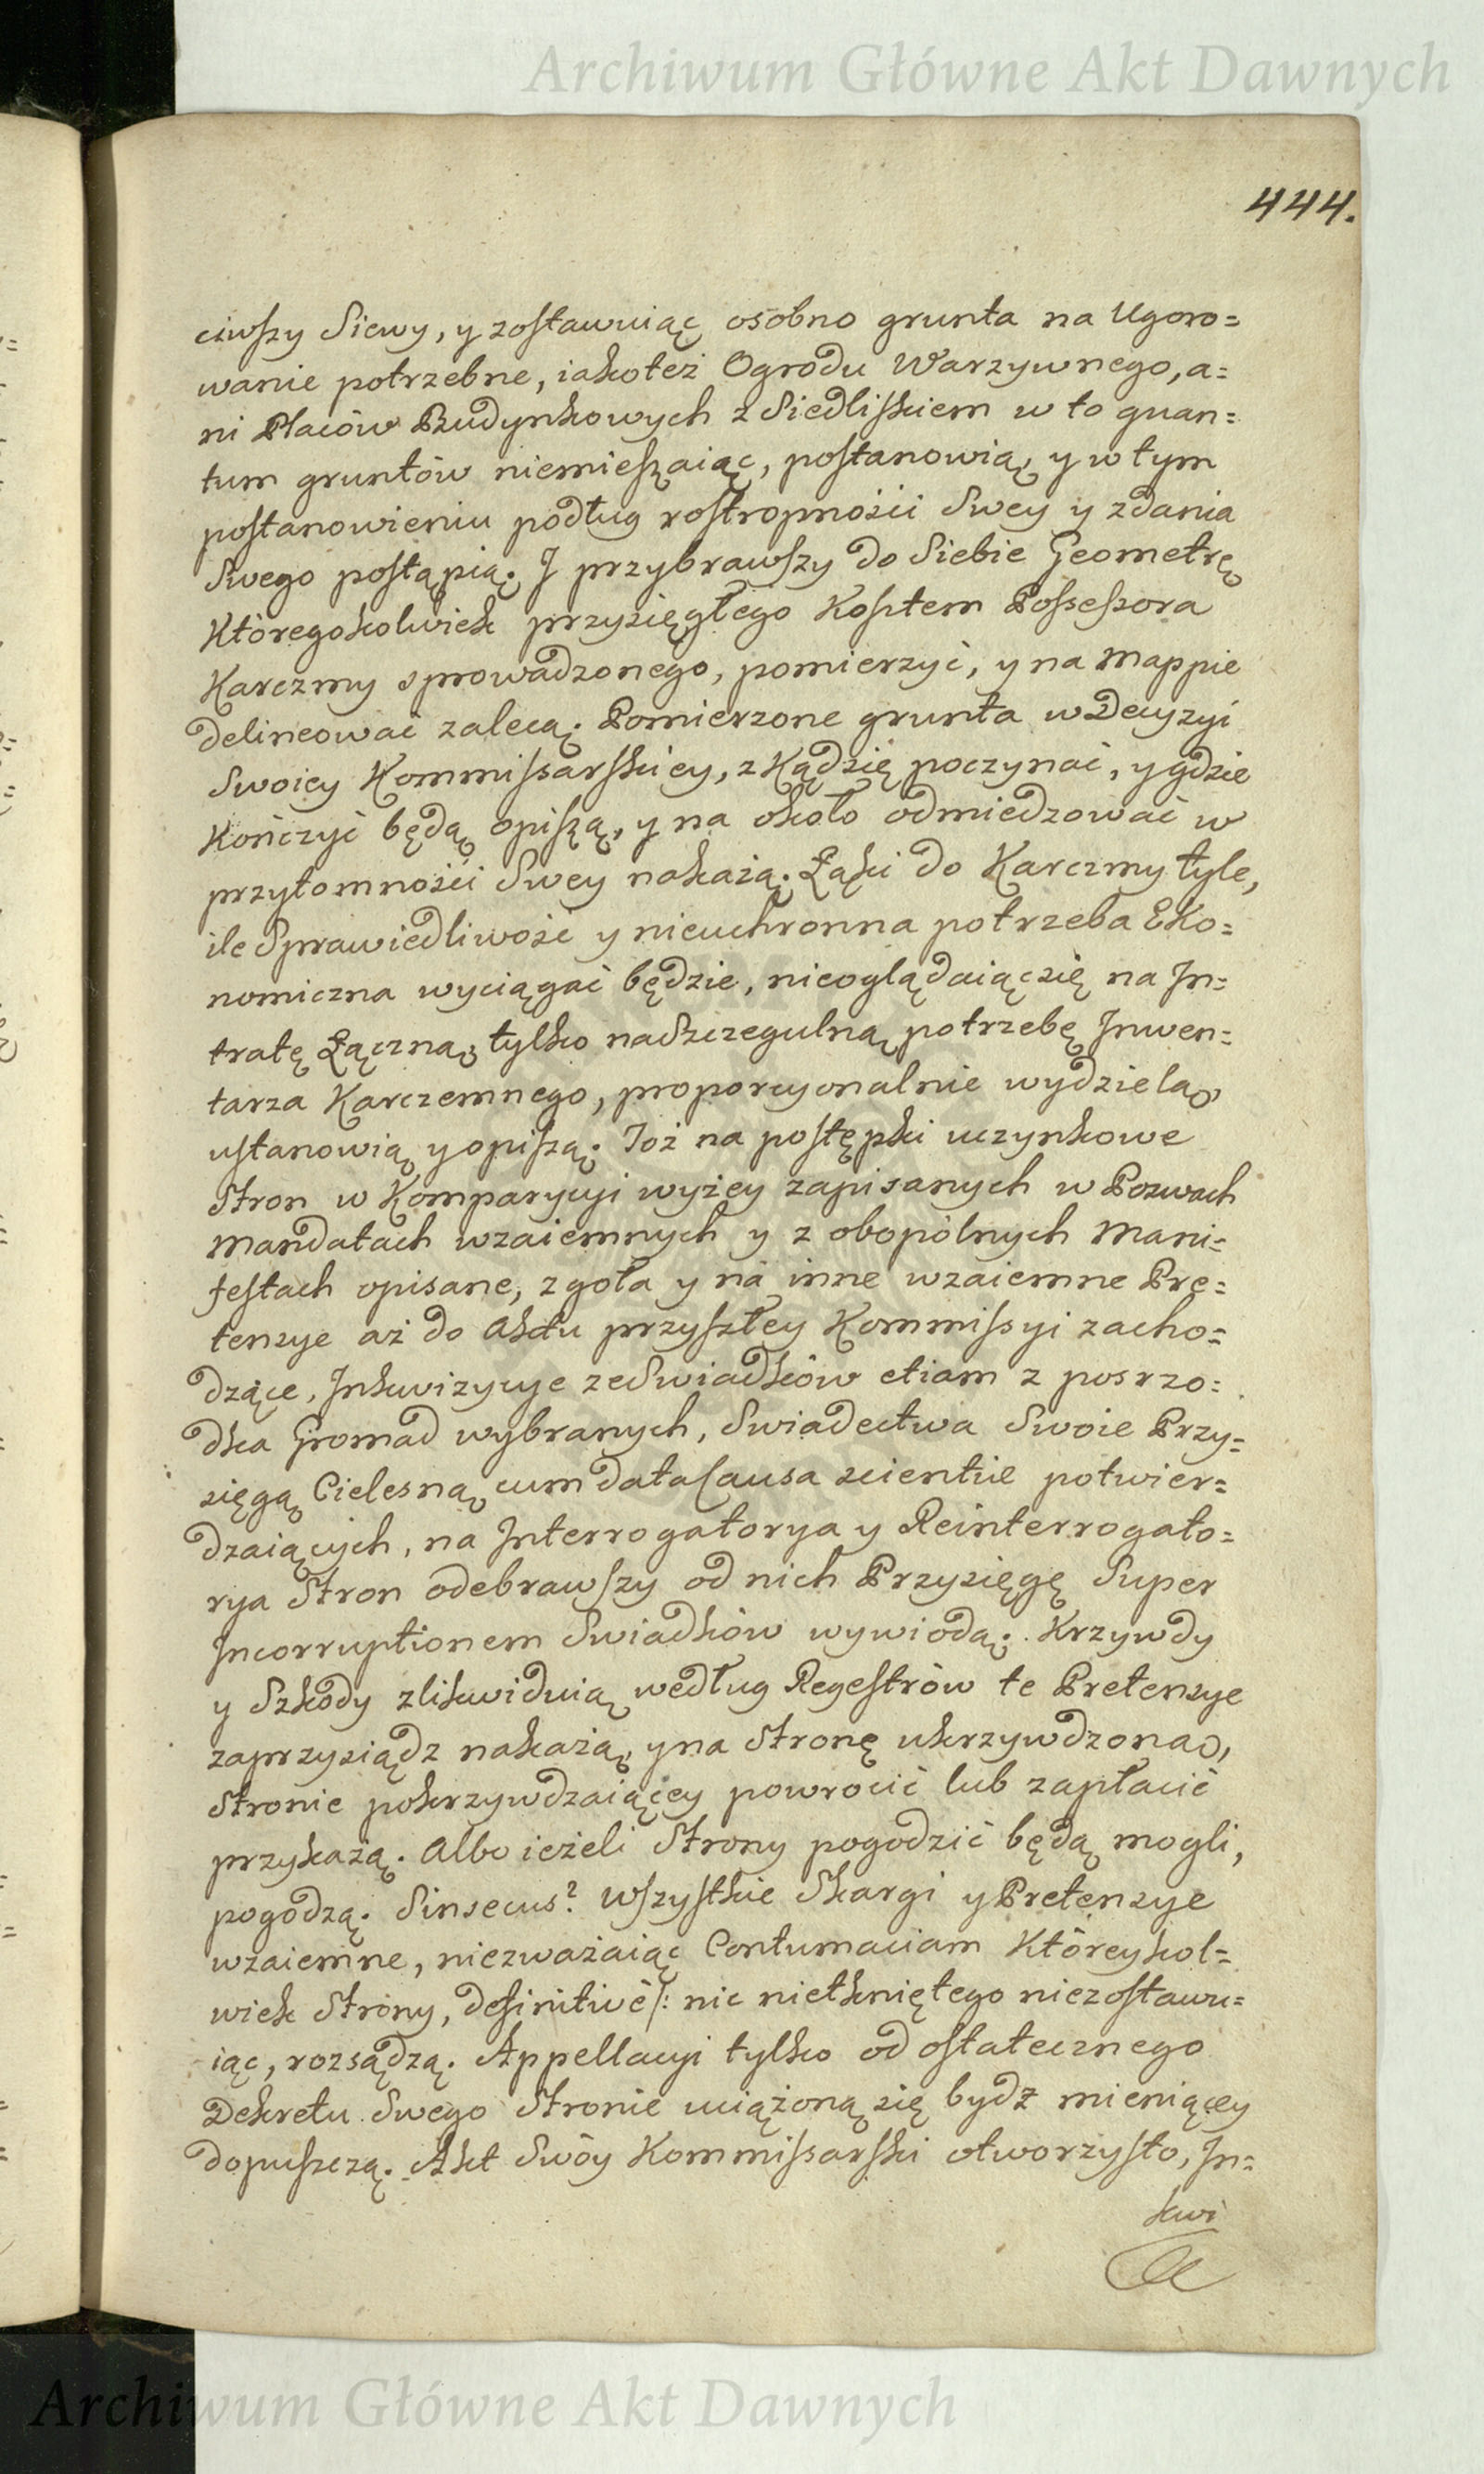 Archiwum Główne Akt Dawnych
444.
ciwszy Siewy, y zostawuiąc osobno grunta na Ugoro=
wanie potrzebne, iakoteż Ogrodu Warzywnego, a=
ni Placów Budynkowych z Siedliskiem w to quan=
tum gruntów niemieszaiąc, postanowią, y w tym
postanowieniu podług rostropności Swey y zdania
Swego postąpią. I przybrawszy do Siebie Geometrę
Któregokolwiek przysięgłego Kosztem Possessora
Karczmy sprowadzonego, pomierzyć, y na Mappie
delineować zalecą. Pomierzone grunta w Decyzyi
Swoiey Kommissarskiey, z Kądsię poczynać, y gdzie
Kończyć będą opiszą, y na około odmiedzować w
przytomności Swey nakażą. Łąki do Karczmy tyle,
ile Sprawiedliwość y nieuchronna potrzeba Eko=
nomiczna wyciągać będzie, nieoglądaiącsię na In=
tratę Łączną, tylko na Szczegulną potrzebę Inwen=
tarza Karczemnego, proporcyonalnie wydzielą,
ustanowią y opiszą. Toż na postępki uczynkowe
Stron w Komparycyi wyżey zapisanych w Pozwach
Mandatach wzaiemnych y z obopólnych Mani=
festach opisane, zgoła y na inne wzaiemne Pre=
tensye aż do Aktu przyszłey Kommissyi zacho=
dzące, Inkwizycye ze Swiadków etiam z posrzo=
dka Gromad wybranych, Swiadectwa Swoie Przy=
sięgą Cielesną cum data Causa scientiæ potwier=
dzaiących, na Interrogatorya y Reinterrogato=
rya Stron odebrawszy od nich Przysięgę Super
Incorruptionem Swiadków wywiodą. Krzywdy
y Szkody zlikwiduią według Regestrów te Pretensye
zaprzysiądz nakażą, y na Stronę ukrzywdzoną,
Stronie pokrzywdzaiącey powrocić lub zapłacić
przykażą. Albo ieżeli Strony pogodzić będą mogli,
pogodzą. Sinsecus? Wszystkie Skargi y Pretensye
wzaiemne, niezważaiąc Contumaciam Któreykol=
wiek Strony, definitivè /: nic nietkniętego niezostawu=
iąc, rozsądzą. Appellacyi tylko od ostatecznego
Dekretu Swego Stronie uciążoną się bydź mieniącey
dopuszczą. Akt Swóy Kommissarski otworzysto, In=
kwi
Archiwum Główne Akt Dawnych